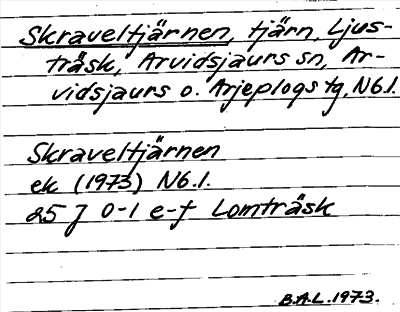 Skraveltjärnen, tjärn, Ljus-
träsk, Arvidsjaurs sn, Ar-
vidsjaurs o. Arjeplogs tg, Nb.l.
Skraveltjärnen
ek (1973) Nb.l.
25 J 0-1 e-f Lomträsk
B.A.L. 1973.